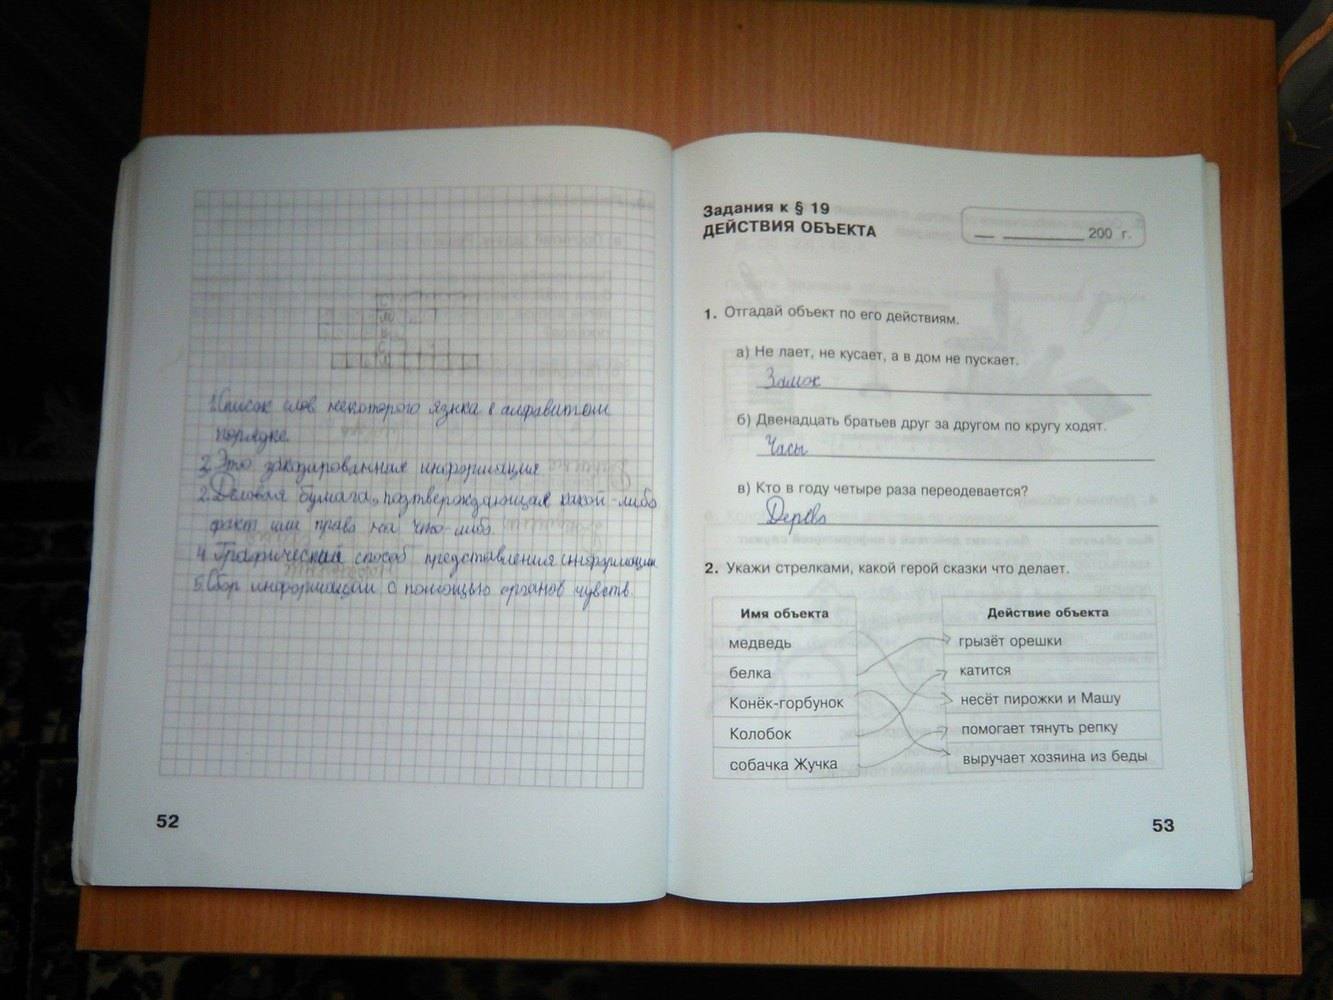 1. Список слов некоторого языка в алфавитом
порядке.
2. Это закодированная информация
2. Деловая бумага, подтверждающая какой-либо
факт или право на что-либо.
4. Графический способ представления информации
5. Сбор информации с помощью органов чувств.
52
Задания к § 19
ДЕЙСТВИЯ ОБЪЕКТА
__ ________ 200 г.
1. Отгадай объект по его действиям.
а) Не лает, не кусает, а в дом не пускает.
Замок
б) Двенадцать братьев друг за другом по кругу ходят.
Часы
в) Кто в году четыре раза переодевается?
Дерево
2. Укажи стрелками, какой герой сказки что делает.
Имя объекта Действие объекта
медведь грызёт орешки
белка катится
Конёк-горбунок несёт пирожки и Машу
Колобок помогает тянуть репку
собачка Жучка выручает хозяина из беды
53